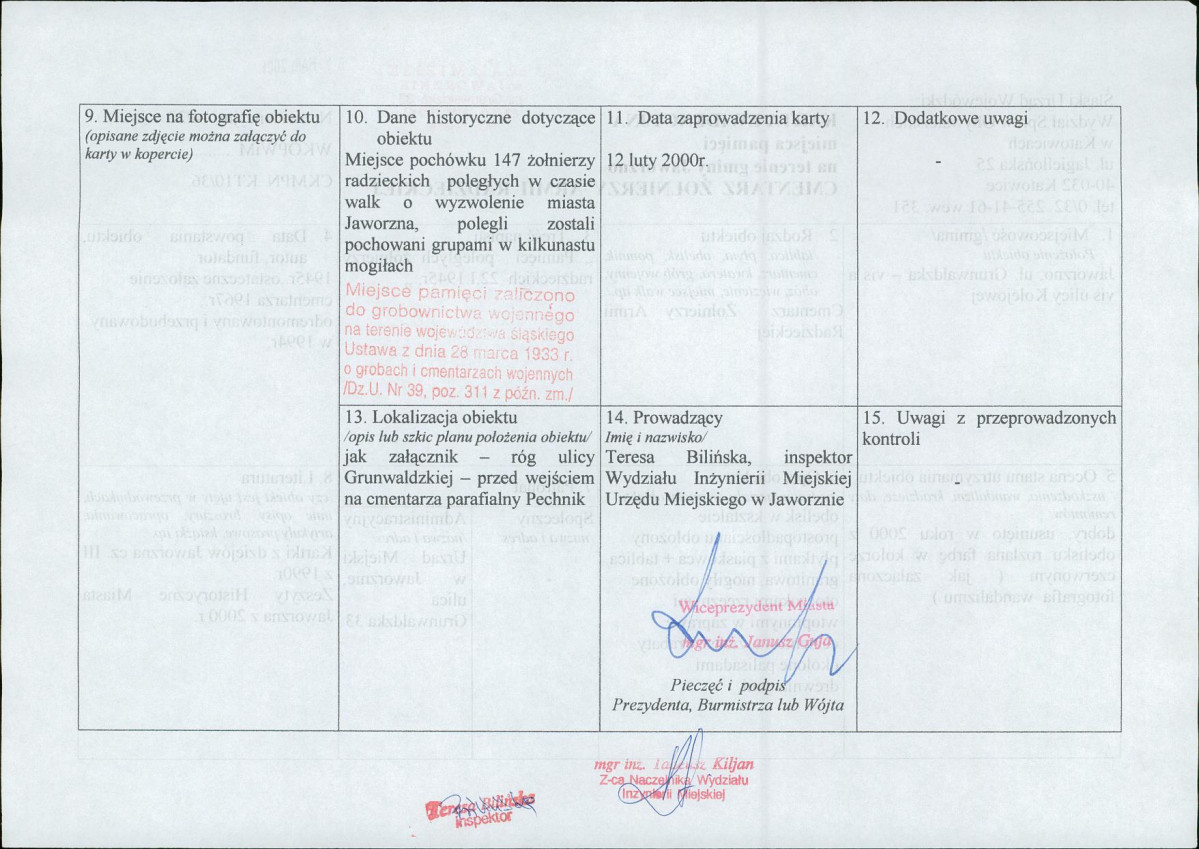 9. Miejsce na fotografię obiektu
(opisane zdjęcie można załączyć do
karty w kopercie)
10. Dane historyczne dotyczące
obiektu
Miejsce pochówku 147 żołnierzy
radzieckich poległych w czasie
walk o wyzwolenie miasta
Jaworzna, polegli zostali
pochowani grupami w kilkunastu
mogiłach
Miejsce pamięci zaliczono
do grobownictwa wojennego
na terenie województwa śląskiego
Ustawa z dnia 28 marca 1933 r.
o grobach i cmentarzach wojennych
/Dz.U. Nr 39, poz. 311 z późn. zm./
11. Data zaprowadzenia karty
12 luty 2000r.
12. Dodatkowe uwagi
-
13. Lokalizacja obiektu
/opis lub szkic planu położenia obiektu/
jak załącznik – róg ulicy
Grunwaldzkiej – przed wejściem
na cmentarza parafialny Pechnik
14. Prowadzący
Imię i nazwisko/
Teresa Bilińska, inspektor
Wydziału Inżynierii Miejskiej
Urzędu Miejskiego w Jaworznie
Wiceprezydent Miasta
mgr inż. Janusz
Pieczęć i podpis
Prezydenta, Burmistrza lub Wójta
15. Uwagi z przeprowadzonych
kontroli
-
mgr inż. Tadeusz Kiljan
Z-ca Naczelnika Wydziału
Inżynierii Miejskiej
Teresa Bilińska
inspektor